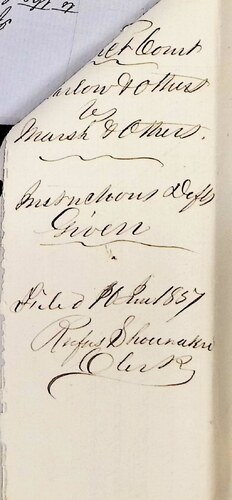 Court
& Others
vs
Marsh & Others.
Instructions Defts
Given
Filed 1857
Rufus Shoemaker
Clerk